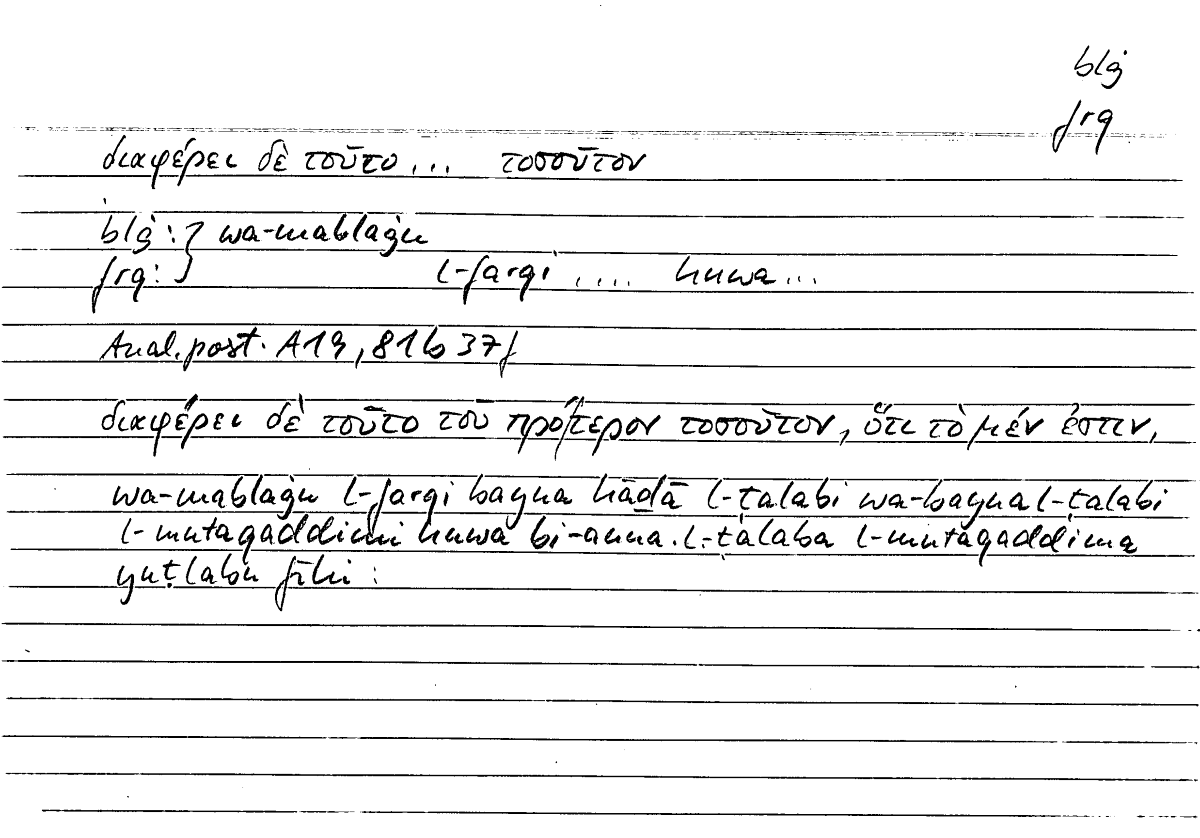 blġ
frq
διαφέρει δὲ τοῦτο ... τοσοῦτον
blġ : } wa-mablaġu
frq : } l-farqi .... huwa ...
Anal. post. A19, 81b 37f
διαφέρει δὲ τοῦτο τοῦ πρότερον τοσοῦτον, ὅτι τὸ μέν ἐστιν,
wa-mablaġu l-farqi bayna hāḏā l-ṭalabi wa-bayna l-ṭalabi
l-mutaqaddimi huwa bi-anna l-ṭalaba l-mutaqaddima
yuṭlabu fīhi :